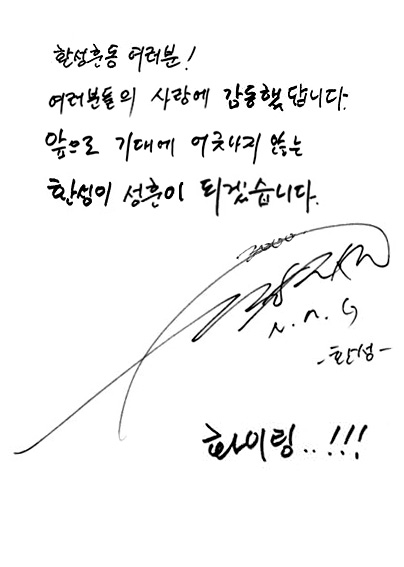 환성훈동 여러분!
여러분들의 사랑에 감동했답니다.
앞으로 기대에 어긋나지 않는
환성이 성훈이 되겠습니다.
N.R.G
-환성-
화이팅..!!!